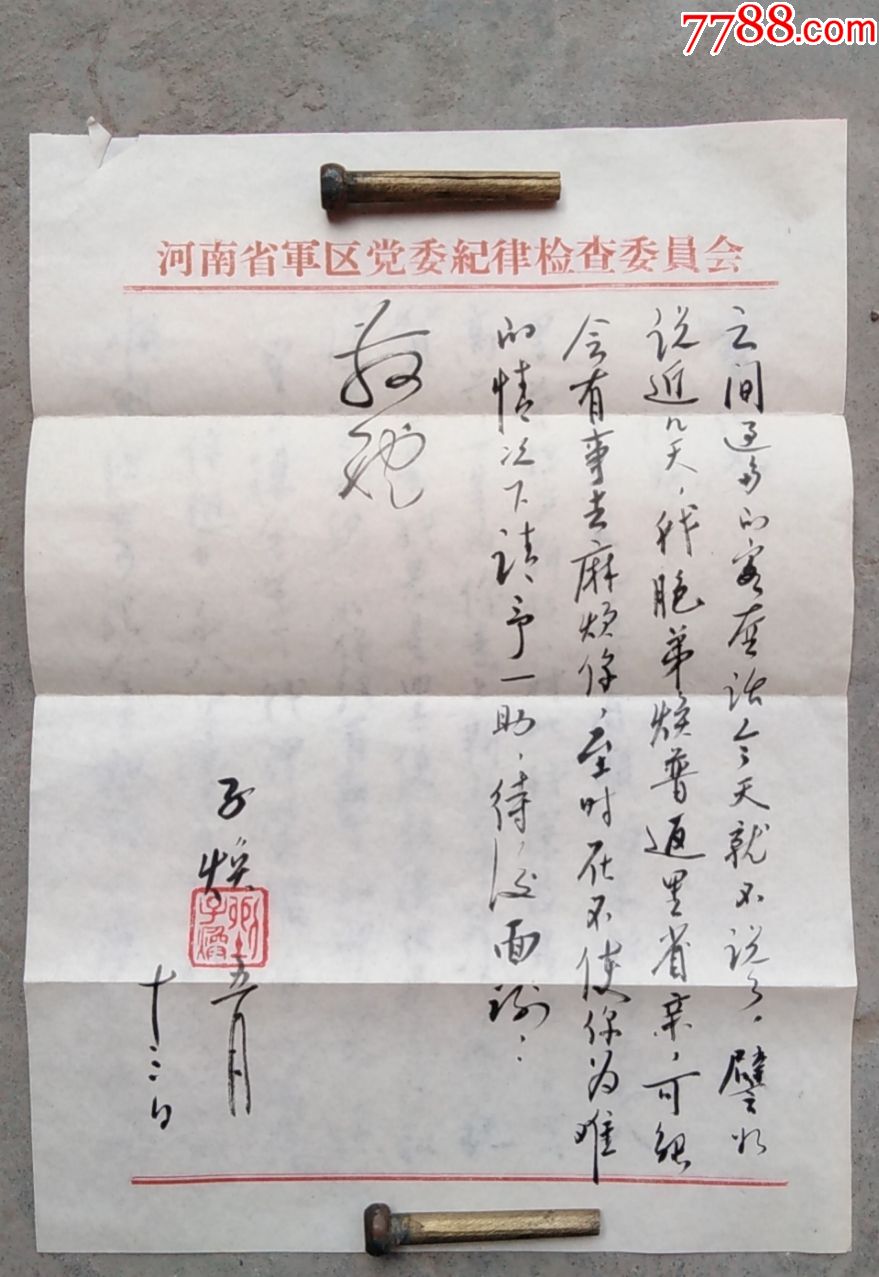 7788.com
河南省軍区党委紀律检查委員会
之间过多的客套话今天就不说了。譬如
说近几天，我胞弟焕普返里省亲，可能
会有事去麻烦你，至时在不使你为难
的情况下请予一助，待后面谢！
敬礼
子焕
五月
十三日